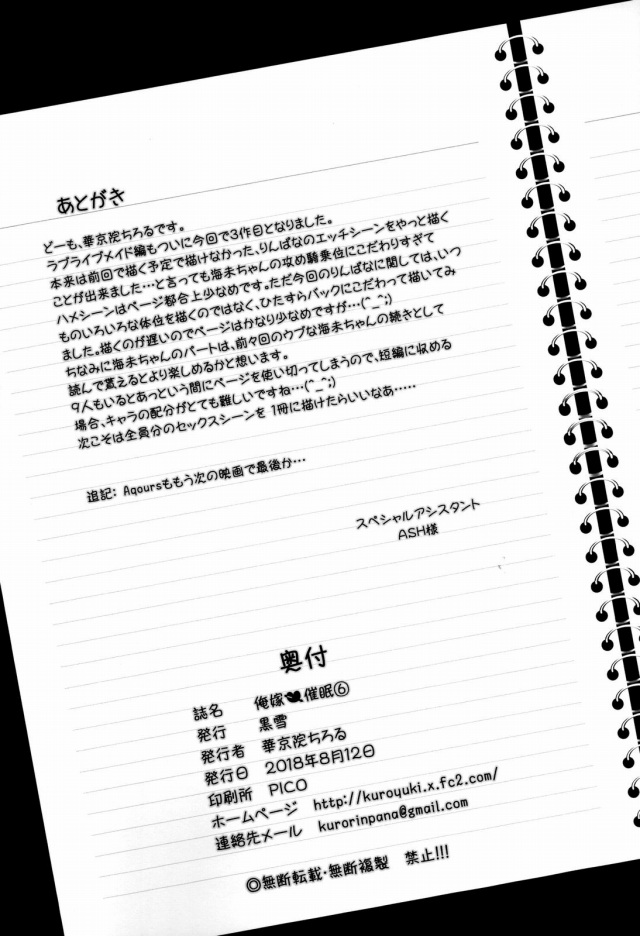 あとがき
どーも、華京院ちろるです。
ラブライブメイド編もついに今回で3作目となりました。
本来は前回で描く予定で描けなかった、りんぱなのエッチシーンをやっと描く
ことが出来ました…と言っても海未ちゃんの攻め騎乗位にこだわりすぎて
ハメシーンはページ都合上少なめです。ただ今回のりんぱなに関しては、いつ
ものいろいろな体位を描くのではなく、ひたすらバックにこだわって描いてみ
ました。描くのが遅いのでページはかなり少なめですが…(^_^;)
ちなみに海未ちゃんのパートは、前々回のウブな海未ちゃんの続きとして
読んで貰えるとより楽しめるかと想います。
9人もいるとあっという間にページを使い切ってしまうので、短編に収める
場合、キャラの配分がとても難しいですね…(^_^;)
次こそは全員分のセックスシーンを1冊に描けたらいいなあ……
追記: Aqoursももう次の映画で最後か…
スペシャルアシスタント
ASH様
奥付
誌名 俺嫁催眠⑥
発行 黒雪
発行者 華京院ちろる
発行日 2018年8月12日
印刷所 PICO
ホームページ http://kuroyuki.x.fc2.com/
連絡先メール kurorinpana@gmail.com
◎無断転載・無断複製 禁止!!!